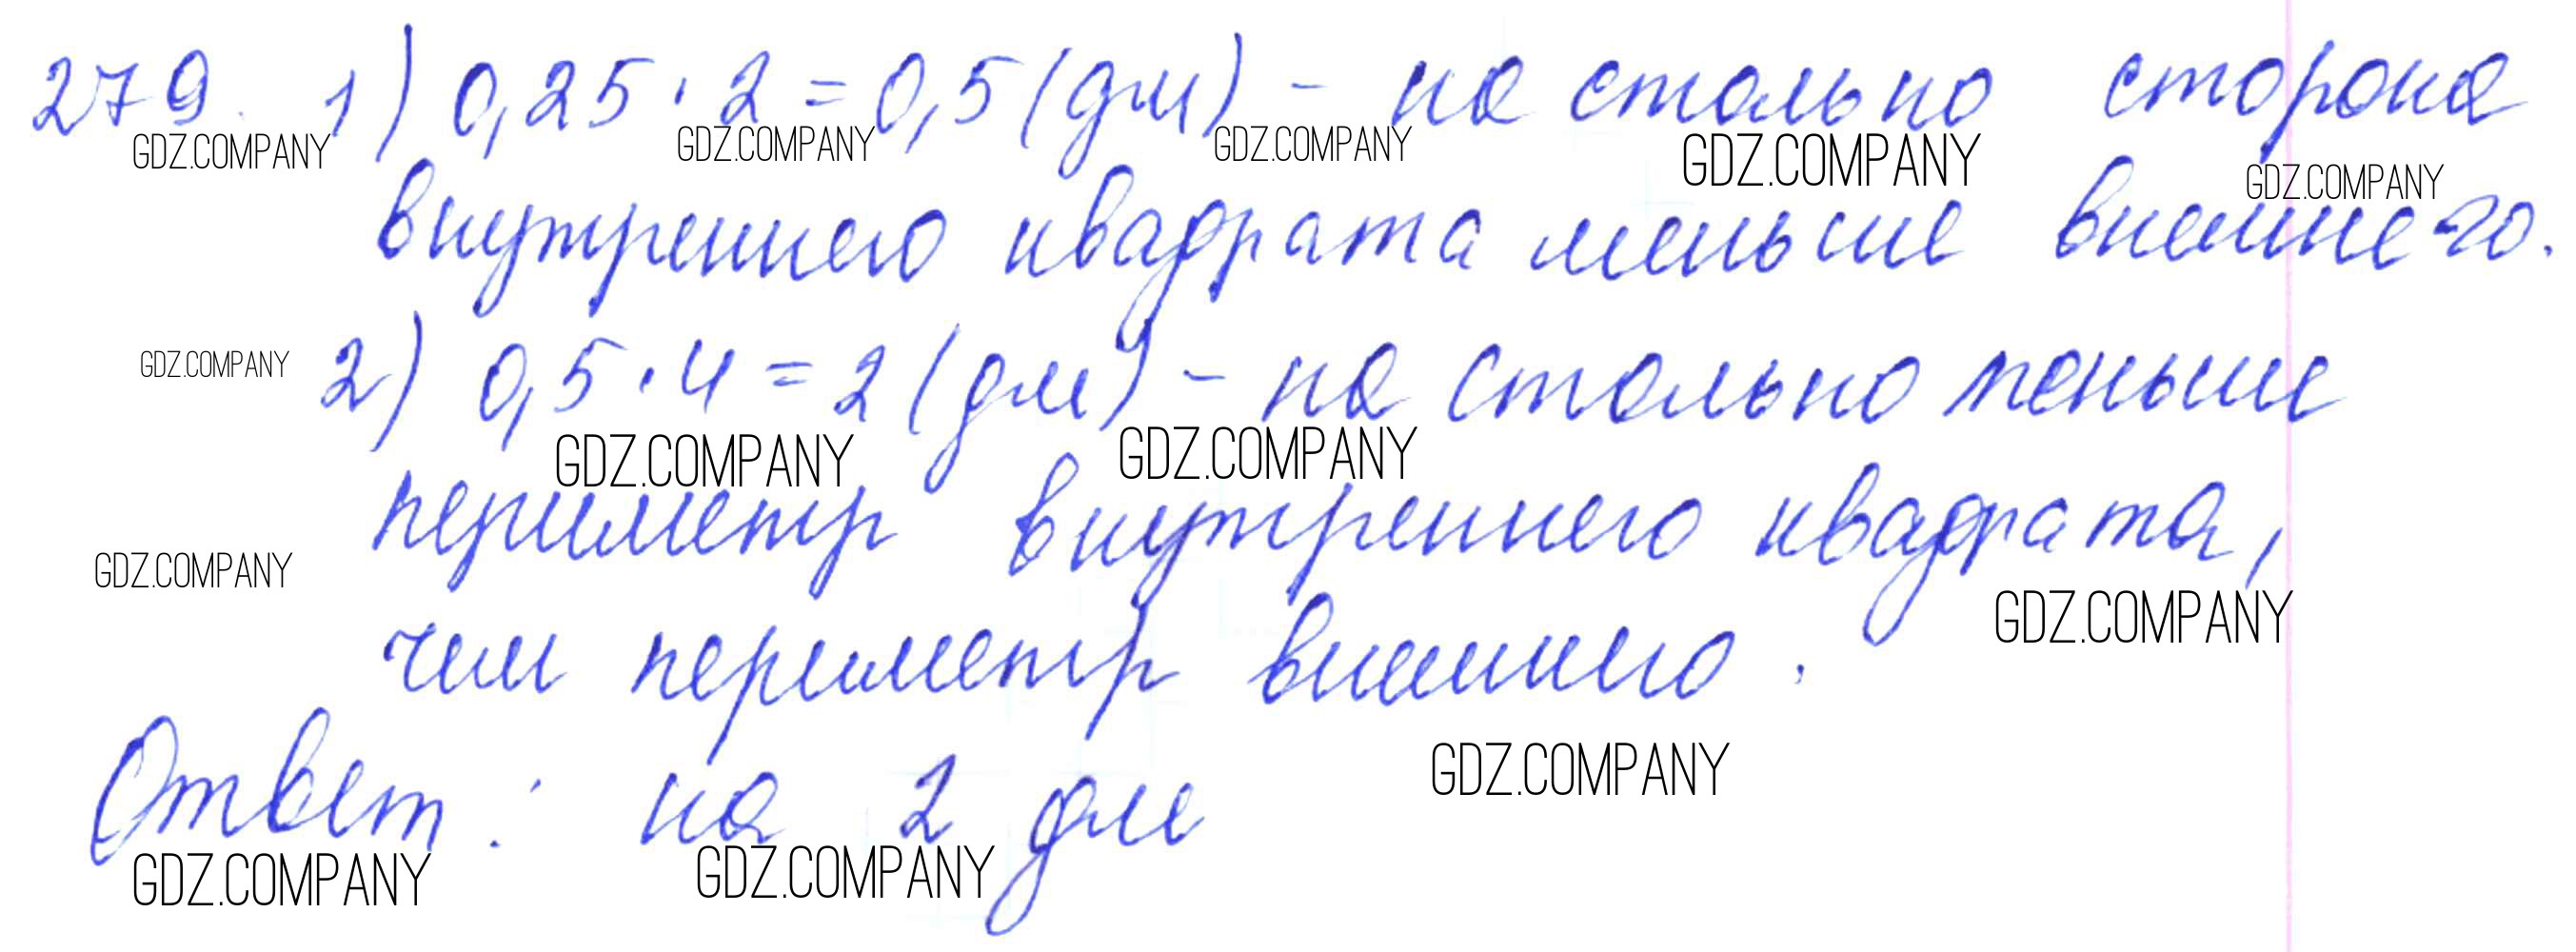 279. 1) 0,25 · 2 = 0,5 (дм) - на столько сторона
GDZ.COMPANY GDZ.COMPANY GDZ.COMPANY GDZ.COMPANY GDZ.COMPANY
внутреннего квадрата меньше внешнего.
GDZ.COMPANY 2) 0,5 · 4 = 2 (дм) - на столько меньше
GDZ.COMPANY GDZ.COMPANY
периметр внутреннего квадрата,
GDZ.COMPANY GDZ.COMPANY
чем периметр внешнего.
GDZ.COMPANY
Ответ: на 2 дм
GDZ.COMPANY GDZ.COMPANY